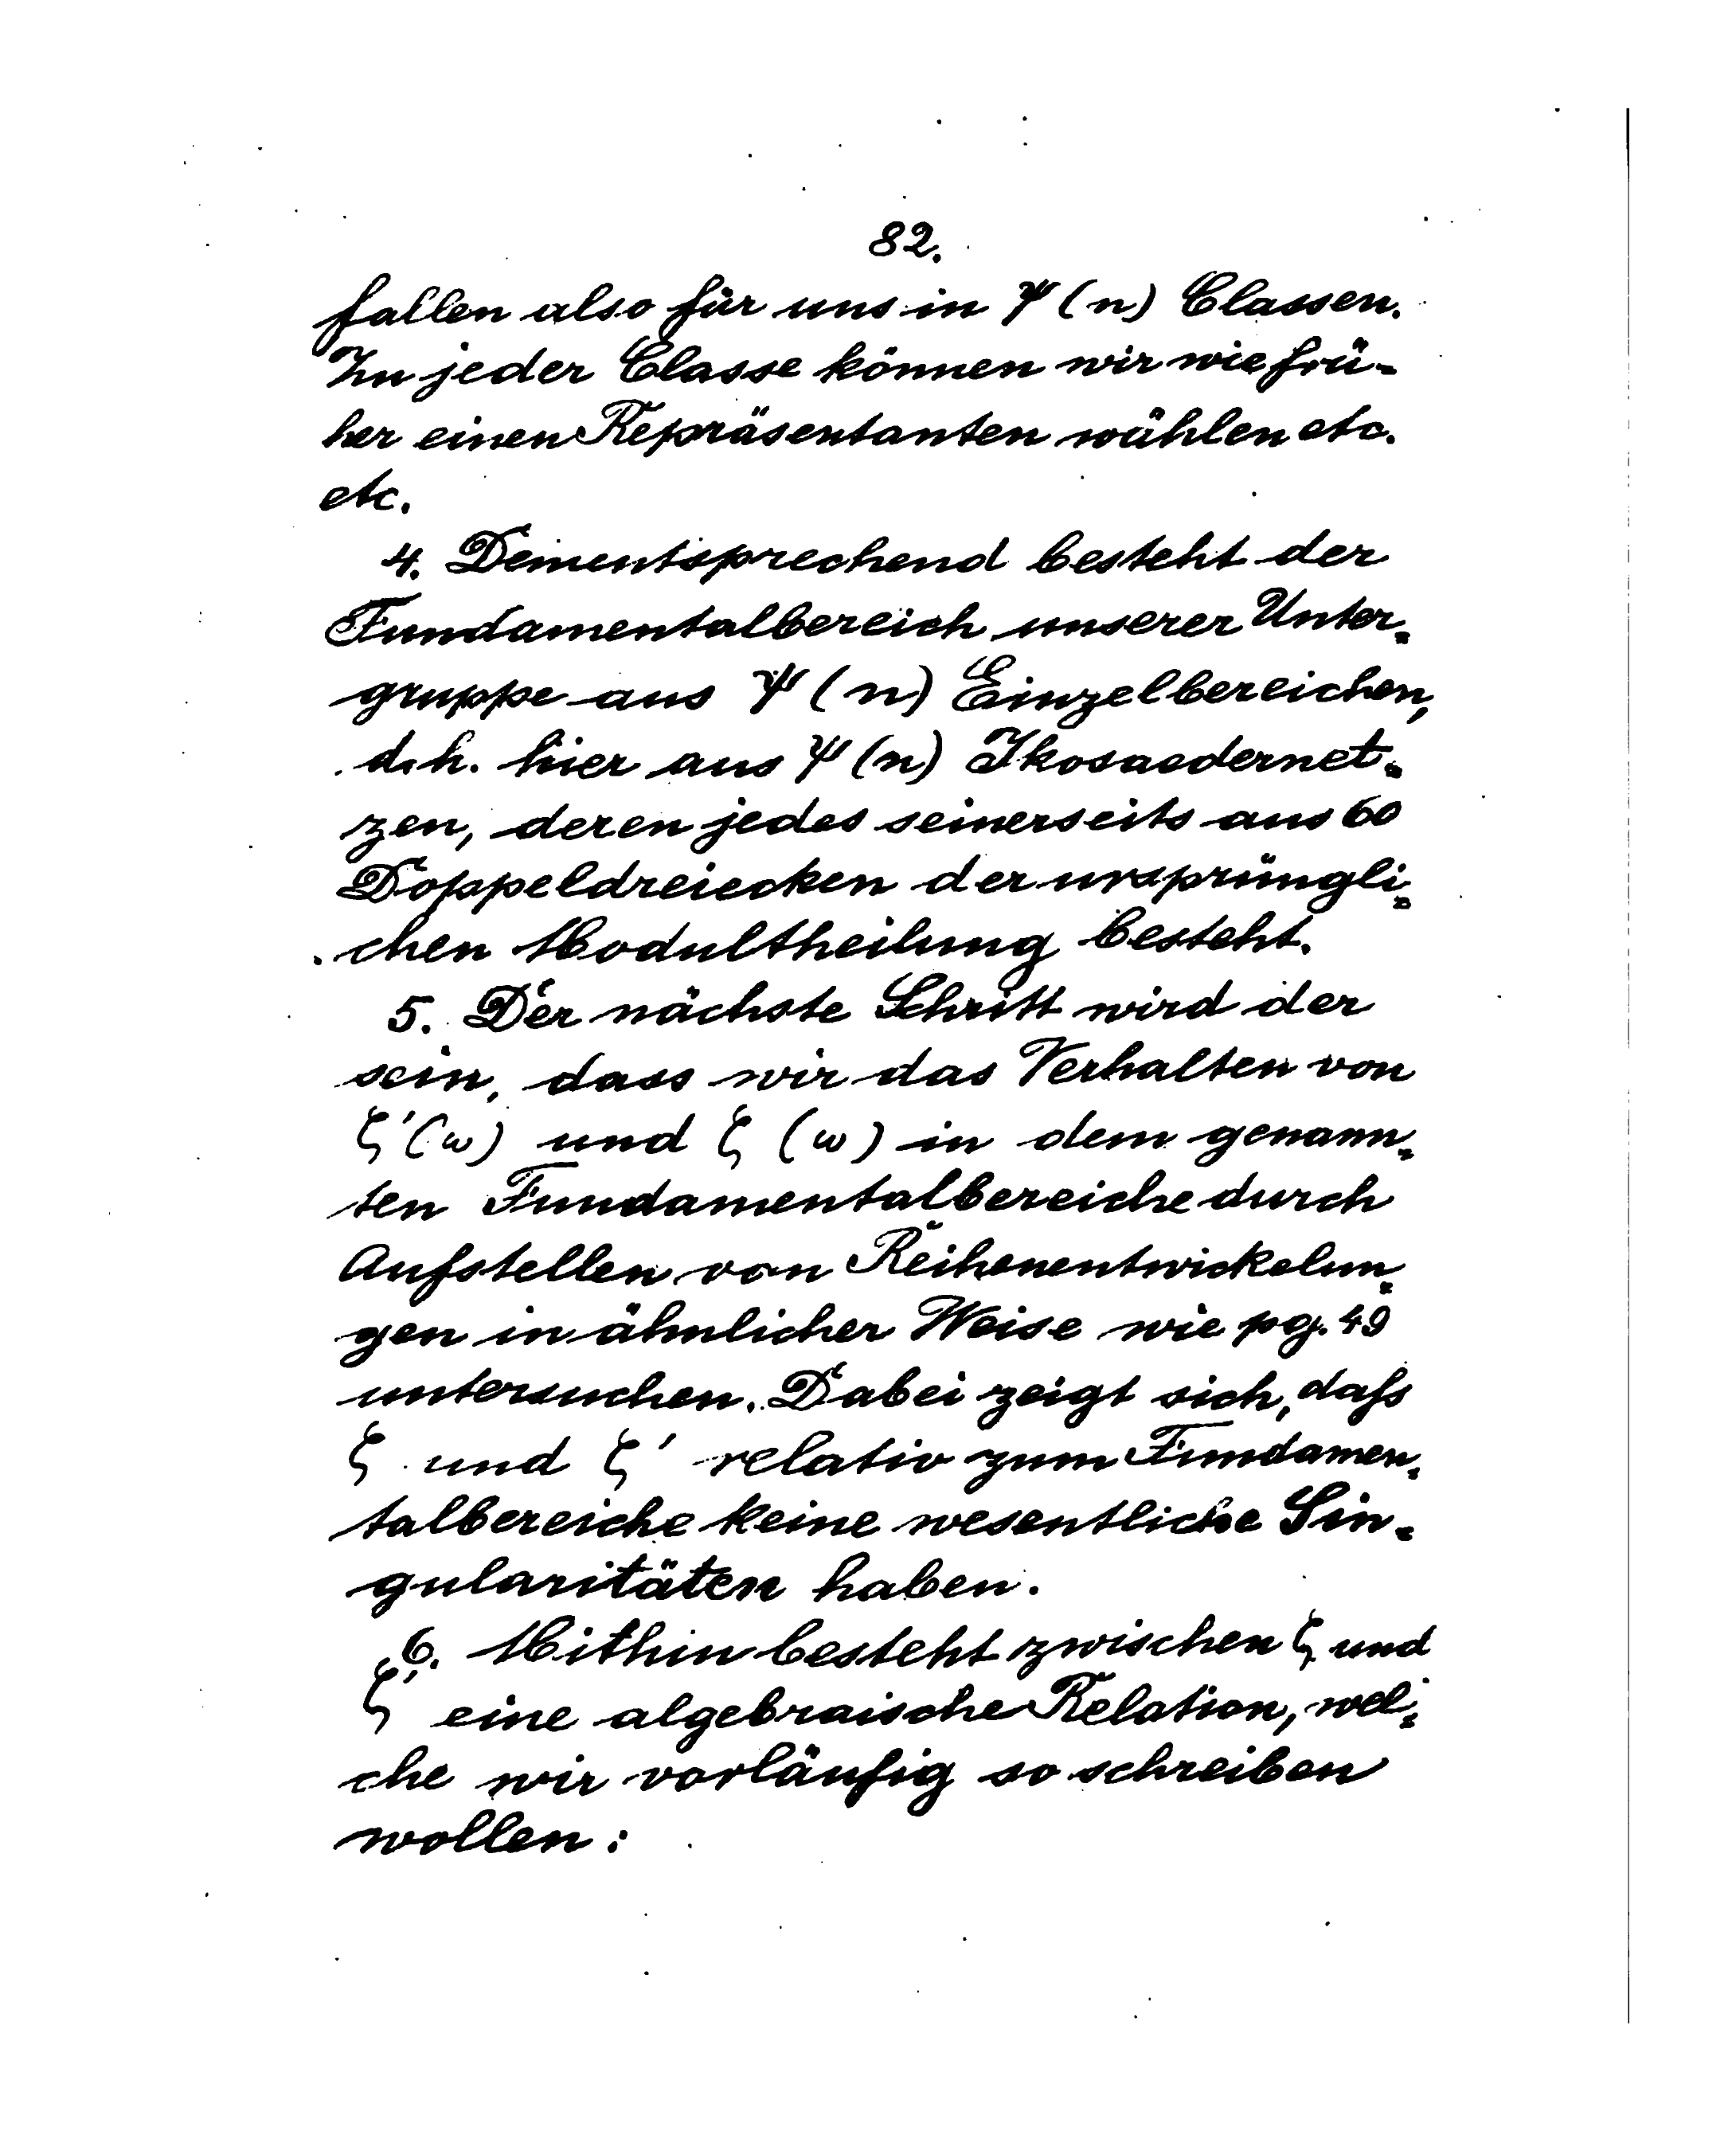 82.
fallen also für uns in ψ (n) Classen.
In jeder Classe können wir wie frü-
her einen Repräsentanten wählen etc.
etc.
4. Dementsprechend besteht der
Fundamentalbereich unserer Unter-
gruppe aus ψ (n) Einzelbereichen,
d.h. hier aus ψ (n) Ikosaedernet-
zen, deren jedes seinerseits aus 60
Doppeldreiecken der ursprüngli-
chen Modultheilung besteht.
5. Der nächste Schritt wird der
sein, dass wir das Verhalten von
ζ'(ω) und ζ (ω) in dem genann-
ten Fundamentalbereiche durch
Aufstellen von Reihenentwickelun-
gen in ähnlicher Weise wie pg. 49
untersuchen. Dabei zeigt sich, daſs
ζ und ζ' relativ zum Fundamen-
talbereiche keine wesentliche Sin-
gularitäten haben.
6. Mithin besteht zwischen ζ und
ζ' eine algebraische Relation, wel-
che wir vorläufig so schreiben
wollen: